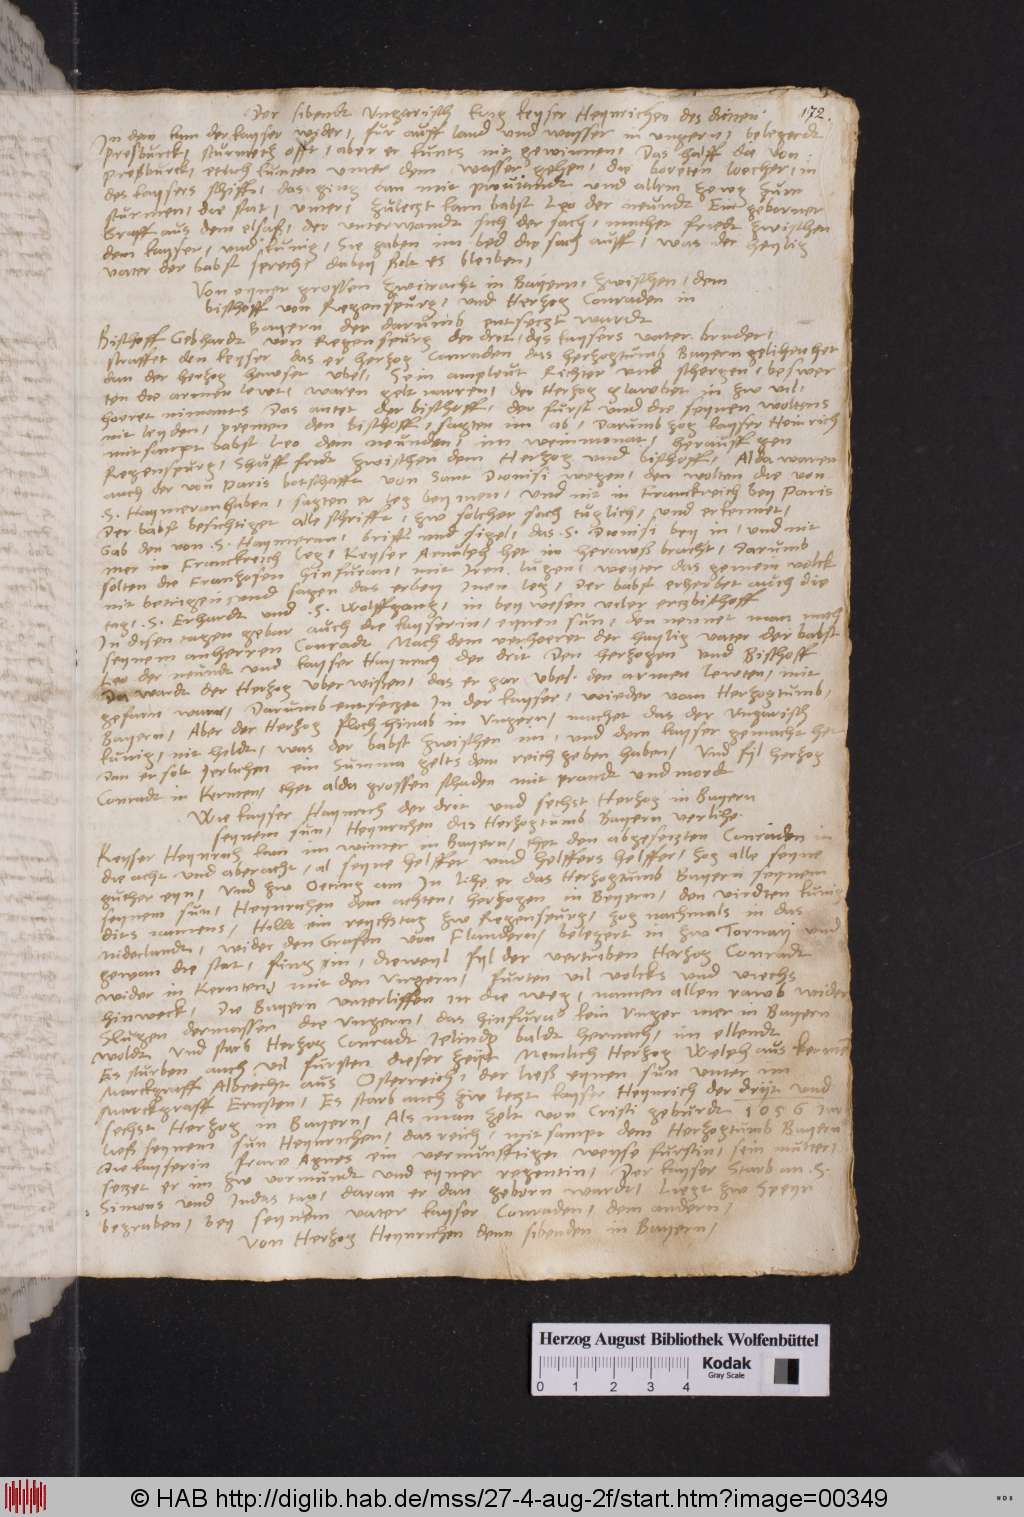 172.
Der sibendt Ungarisch krig keyser Heynrichen des dritten
In dem kam der kayser wider, fur auff land und wasser in ungern, belegerdt
Presburck, sturmeth offt, aber er kunts nit gewinnen, Das halff die von
Presburck, etlich kunten unter dem wasser gehen, die boreten loecher, in
des kaysers schiff, das ging an mit proviandt und allem zewg zum
sturmen, die stat, unter, zuletzt kam babst Leo der neundt Ein geborner
Graff aus dem elsas, der unterwandt sich der sach, machet fridt zwischen
dem kayser, und kunig, Sie gaben im bed die sach auff, was der heylig
vater der babst sprech, dabey solt es bleiben,
Von eyner grossen zwitracht in Bayern, zwischen, dem
bischoff von Regenspurg, und Herzog Conraden in
Bayern der darumb entsetzt wardt
Bischoff Gebhardt von Regenspurg der drit, des kaysers vater bruder,
straffet den keyser das er herzog Conraden das herzogtumb Bayern gelihen het
dan der herzog hawset ubel, Sein amptleut Richter und schergen, beswer
ten die armen lewt, waren gelt narren, der Herzog glawbet in zw vil,
hoeret nimants Das antet der bischoff, der furst und die seynen woltens
nit leyden, sagten im ab, Darumb zog kayser Heinrich
mit sampt babst Leo dem neunden, im weinmonat, herauff gen
Regenspurg, Schuff fridt zwischen dem Herzog und bischoff, Alda waren
auch der von Paris botschafft von Sant Dionisi wegen, den wolten die von
S. Haymeran haben, sagten er leg bey inen, und nit in Franckreich bey Paris
Der babst besichtiget alle schrifft, zw solcher sach tuglich, und erkennet,
Gab den von S. Haymeran, briff und sigel, das S. Dionisi bey in, und nit
mer in Franckreich leg, Keyser Arnulph het in heraws bracht, Darumb
solten die Franzosen hinfuran, mit Iren lugen, weyter das gemein volck
nit betrigen, und sagen das er bey Inen leg, Der babst erhebet auch die
tag, S. Erhardt und S. Wolffgang, in bey wesen viler ertzbischoff
In disen tagen gebar auch die kayserin, eynen sun, den nennet man nach
seynem anherren Conradt Nach dem verhoeret der haylig vater der babst
Leo der neundt und kayser Haynrich der drit Den herzogen und Bischoff
Da wardt der Herzog uberwisen, das er gar ubel den armen lewten, mit
gefarn war, Darumb entsetzet In der kayser, wieder vom Herzogtumb,
Bayern, Aber der Herzog floch hinab in Ungern, machet das der Ungarisch
kunig, nit hieldt, was der babst zwischen im, und dem kayser gemacht het
Dan er solt Ierlichen ein Summa gelts dem reich geben haben, Und fyl herzog
Conradt in Kernten, thet alda grossen schaden mit prandt und mordt
Wie kayser Haynrich der drit und sechst Herzog in Bayern
seynem sun, Heynrichen das Herzogtumb Bayern verlihe
Keyser Heynrich kam im winter in Bayern, thet den abgesetzten Conraden in
die acht und aberacht, al seyne helffer und helffers helffer, zog alle seyne
guther eyn, Und zw Oeting am In lihe er das Herzogtumb Bayern seynem
seynem sun, Heynrichen dem achten, herzogen in Beyern, den virdten kunig
dits namens, Hildt ein reychstag zw Regenspurg, zog nachmals in das
niderlandt, wider den Grafen von Flandern, belegert in zw Tornaci und
gewan die stat, fing in, dieweyl fyl der vertriben Herzog Conradt
wider in Kernten, mit den Ungern, furten vil volcks und viechs
hinweck, Die Bayern unterliffen in die weg, namen allen rawb wider
Schugen dermassen die Ungern, das hinfuro kein Unger mer in Bayern
woldt, Und starb Herzog Conradt baldt hernach, im ellendt
Es sturben auch vil fursten dieser zeyt Nemlich Herzog Welph aus Kernten
Marckgraff Albrecht aus Osterreich, der lies eynen sun unter im
Marckgraff Ernsten, Es starb auch zw letzt kayser Heynrich der dryt und
sechst Herzog in Bayern, Als man zelt von Cristi geburdt 1056 Iar
lies seynem sun Heynrichen, das reich, mit sampt dem Herzogtumb Bayern
die kayserin fraw Agnes ein vernunfftige weyse furstin, sein mutter,
setzet er im zw vormundt und eyner regentin, Der kayser starb an S.
Simons und Iudas tag, daran er dan geborn wardt, Ligt zw Speyr
begraben, bey seynem vater kayser Conraden, dem andern,
Von Herzog Heynrichen dem sibenden in Bayern,
Herzog August Bibliothek Wolfenbüttel
Kodak
Gray Scale
0 1 2 3 4
© HAB http://diglib.hab.de/mss/27-4-aug-2f/start.htm?image=00349